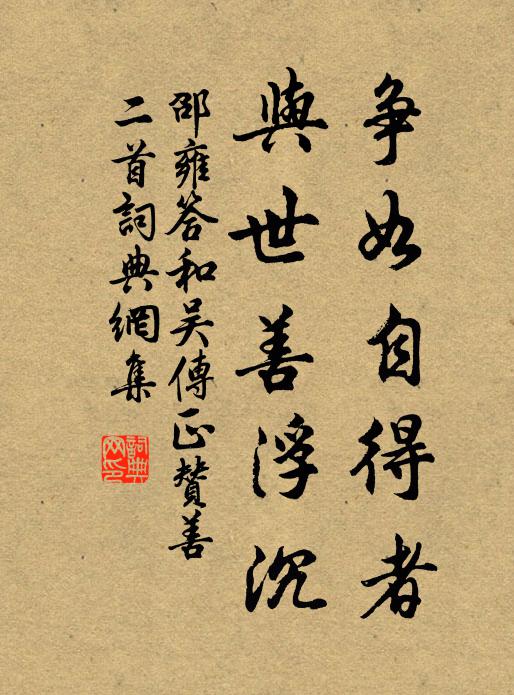 争如自得者
與世善浮沉
邵雍答和吴傳正贊善
二首詞典網集
詞典网印